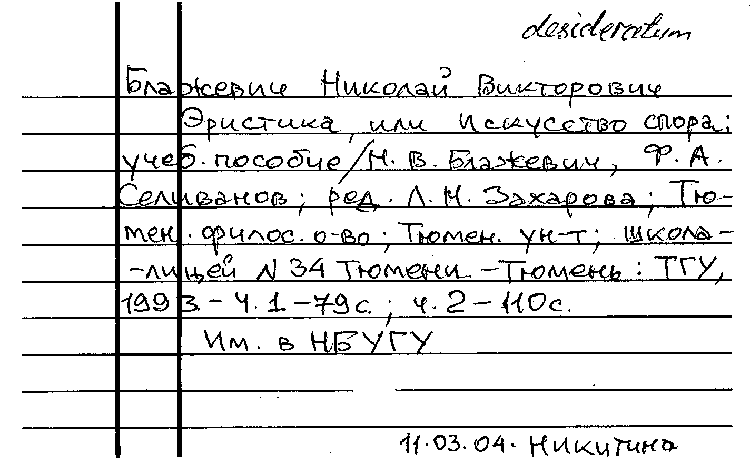 desideratum
Блажевич Николай Викторович
Эристика, или Искусство спора:
учеб. пособие/Н. В. Блажевич, Ф. А.
Селиванов; ред. Л. Н. Захарова; Тю-
мен. филос. о-во; Тюмен. ун-т; школа-
-лицей N 34 Тюмени. -Тюмень: ТГУ,
1993. - Ч. 1. -79с.; ч. 2 - 110с.
Им. в НБУГУ
11.03.04. Никитина